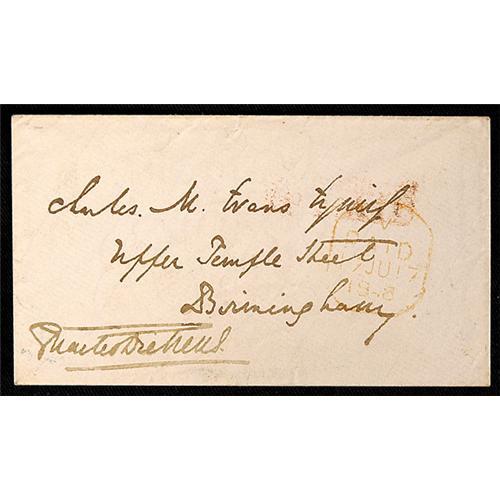 Charles. M. Evans Esquire
Upper Temple Street
Birmingham.
Charles Dickens
V
PAID
7 JU 17
1848